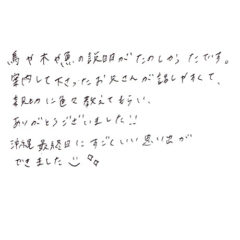 鳥や木や魚の説明がたのしかったです。
案内して下さったお父さんが話しやすくて、
親切に色々教えてもらい、
ありがとうございました!!
沖縄最終日にすごくいい思い出が
できました